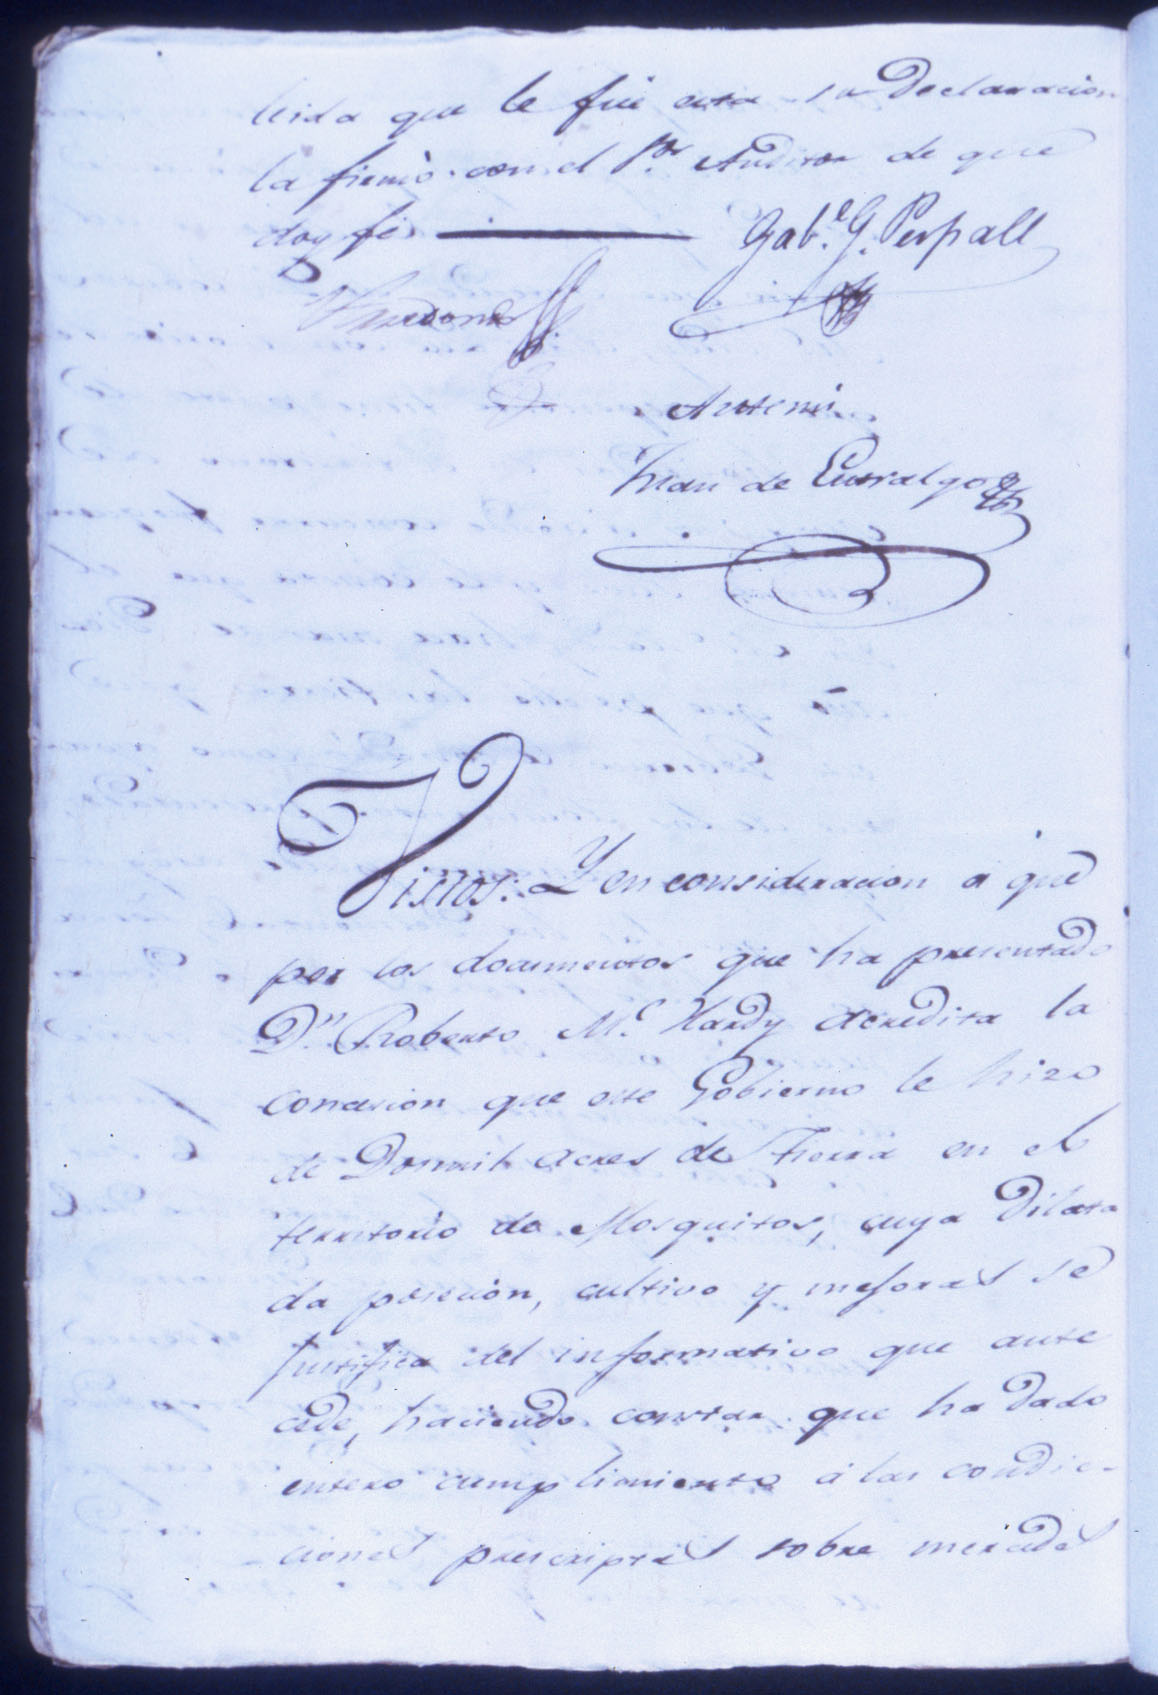 leida que le fue esta su Declaracion
la firmò con el S.or Auditor de que
doy fé
Gab.l G. Perpall
Antemi
Juan de Entralgo
Vistos: Y en consideracion a que
por los documentos que ha presentado
D.n Roberto M.c Hardy acredita la
concesion que este Gobierno le hizo
de Dosmil acres de tierra en el
territorio de Mosquitos, cuya dilata
da posecion, cultivo y mejoras se
justifica del informativo que ante
cede, haciendo constar que ha dado
entero cumplimiento á las condic-
ciones prescriptas sobre mercedes